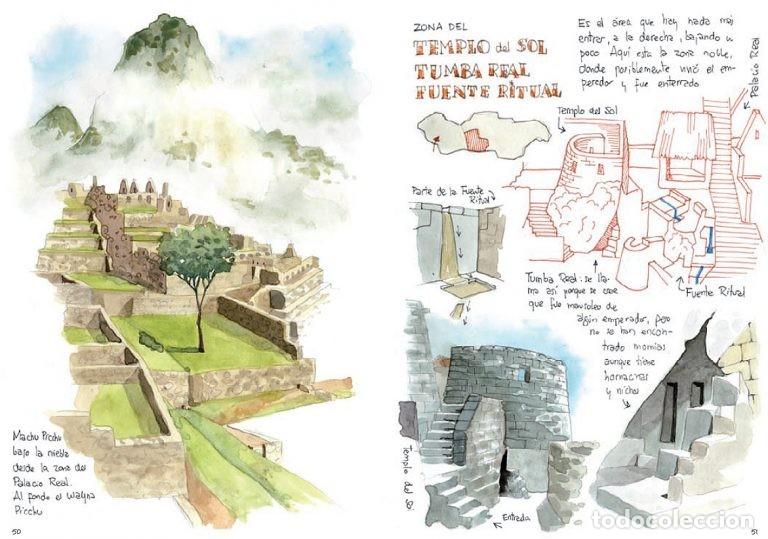 Machu Picchu
bajo la niebla
desde la zona del
Palacio Real.
Al fondo el Wayna
Picchu
50
ZONA DEL
TEMPLO del SOL
TUMBA REAL
FUENTE RITUAL
Es el área que hay nada más
entrar, a la derecha, bajando u
poco. Aquí esta la zona noble,
donde posiblemente vivió el em-
perador y fue enterrado.
Palacio Real
Templo del Sol
Parte de la Fuente
Ritual
Tumba Real: se lla-
ma así porque se cree
que fue mausoleo de
algún emperador, pero
no se han encon-
trado momias
aunque tiene
hornacinas
y nichos
Fuente Ritual
Templo del Sol
Entrada
todocoleccion
51